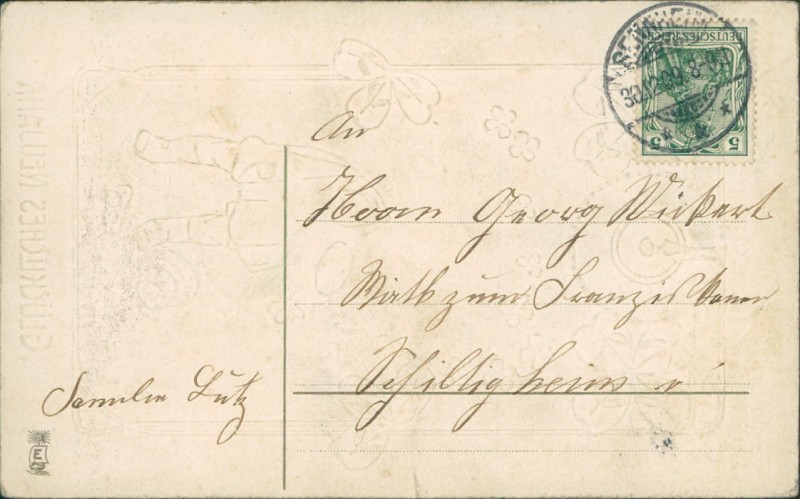 DEUTSCHES REICH
5 5
30.12.09. 8-9 N
An
Herrn Georg Wickert
Wirth zum Franziskaner
Schiltigheim
Familie Lutz
GLÜCKLICHES NEUJAHR